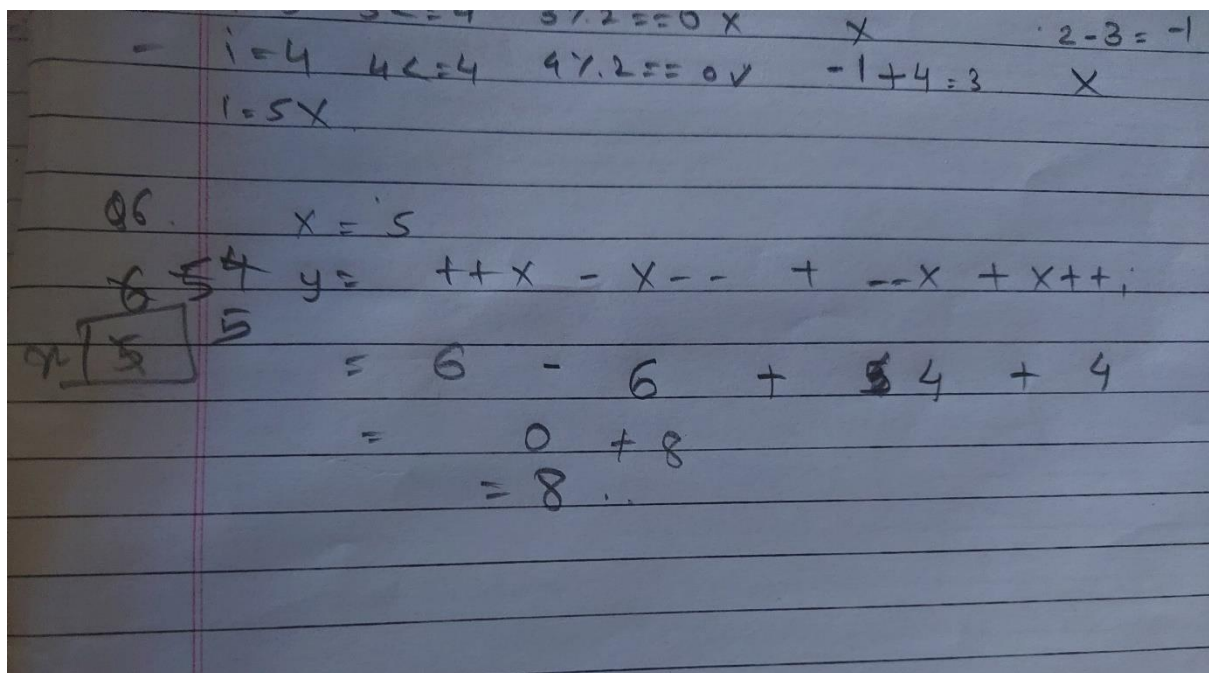 3<=4 3%2==0 X X 2-3=-1
- i=4 4<=4 4%2==0✓ -1+4=3 X
i=5X
Q6. x = 5
6 5 4 y= ++x - x-- + --x + x++;
x 5 5
= 6 - 6 + 4 + 4
= 0 + 8
= 8 ..